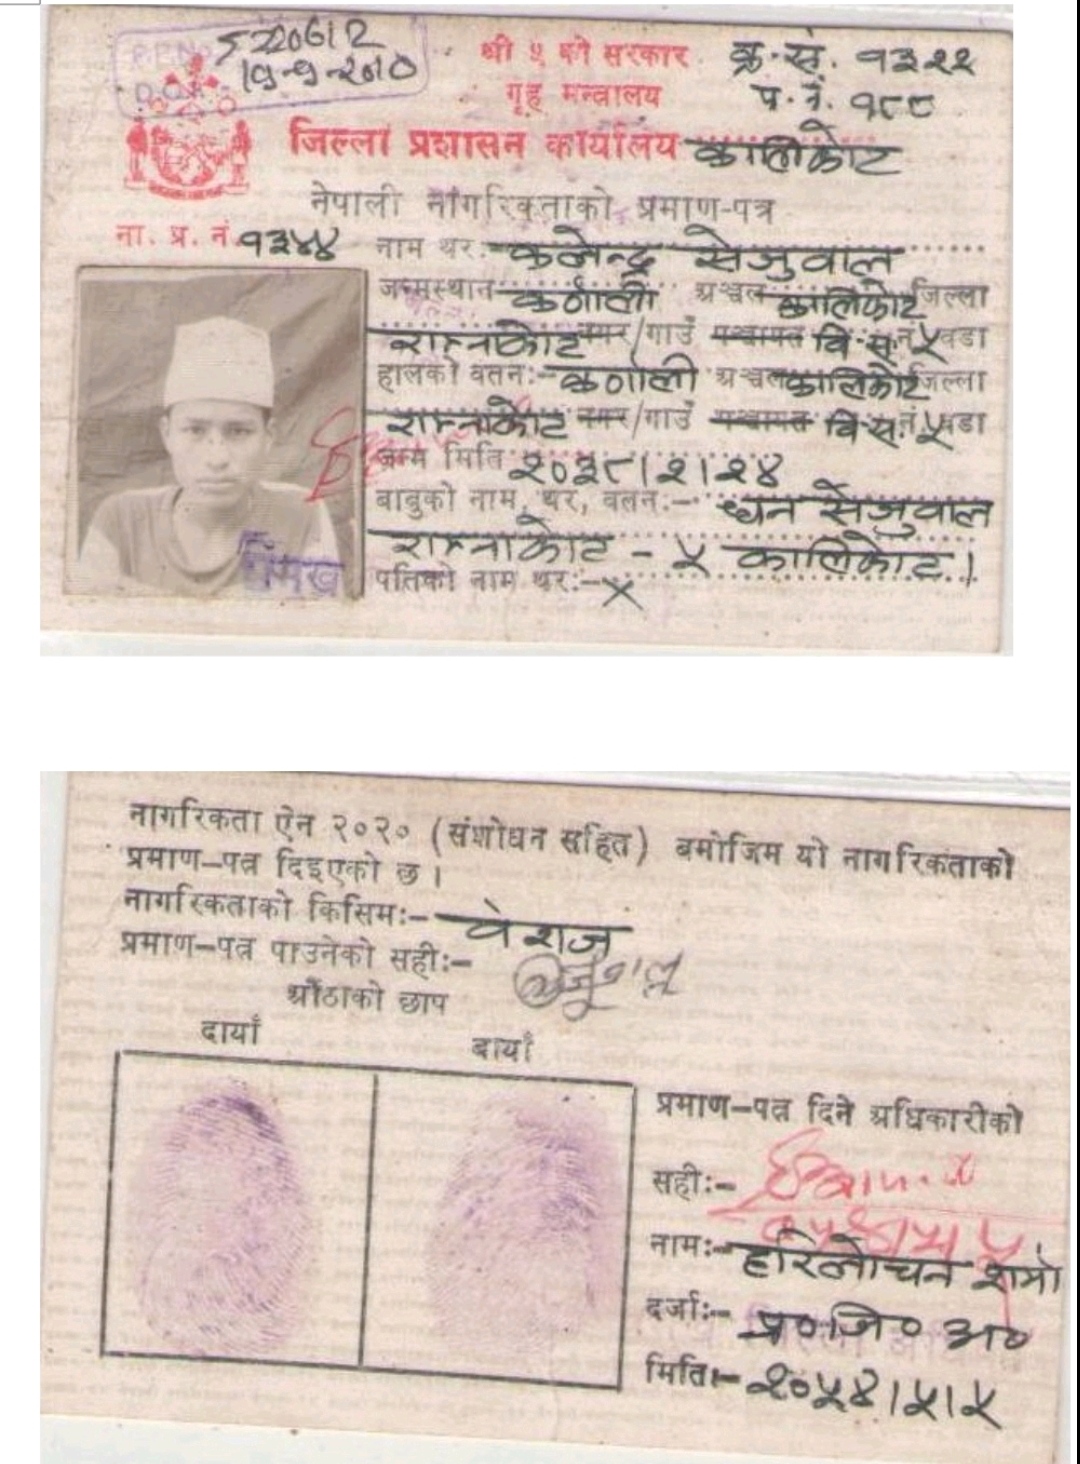 5220612
श्री ५ को सरकार क्र. सं. १३२२
गृह मन्त्रालय प. नं. १८८
जिल्ला प्रशासन कार्यालय कालिकोट
नेपाली नागरिकताको प्रमाण-पत्र
ना. प्र. नं. १३४४ नाम थर:- सेजुवाल
जन्मस्थान कर्णाली अञ्चल कालिकोट जिल्ला
राम्नाकोट नगर/गाउँ पञ्चायत वि.स. नं ५ वडा
हालको वतन:- कर्णाली अञ्चल कालिकोट जिल्ला
राम्नाकोट नगर/गाउँ पञ्चायत वि.स. नं ५ वडा
जन्म मिति २०३८।२।२४
बाबुको नाम, थर, वतन:- धन सेजुवाल
राम्नाकोट - ५ कालिकोट।
पतिको नाम थर:- X
नागरिकता ऐन २०२० (संशोधन सहित) बमोजिम यो नागरिकताको
प्रमाण-पत्र दिइएको छ।
नागरिकताको किसिम:- वंशज
प्रमाण-पत्र पाउनेको सही:-
औंठाको छाप
दायाँ बायाँ
प्रमाण-पत्र दिने अधिकारीको
सही:-
नाम:- हरिलोचन शर्मा
दर्जा:- प्र०जि० अ०
मिति:- २०५४।५।५